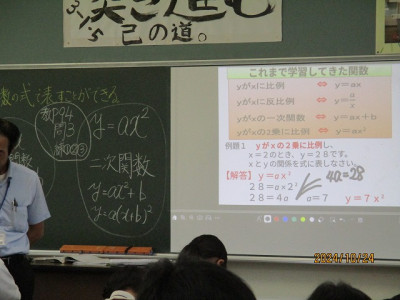 突き進む
己の道。
数の式で表すことができる
教P94
問3
y=ax²
二次関数
y=ax²+b
y=a(x+b)²
これまで学習してきた関数
yがxに比例 ⇔ y=ax
yがxに反比例 ⇔ y=a/x
yがxの一次関数 ⇔ y=ax+b
yがxの2乗に比例 ⇔ y=ax²
例題1 yがxの2乗に比例し、
x=2のとき、y=28です。
xとyの関係を式に表しなさい。
【解答】y=ax²
28=a×2²
4a=28
28=4a a=7 y=7x²
2024/10/24